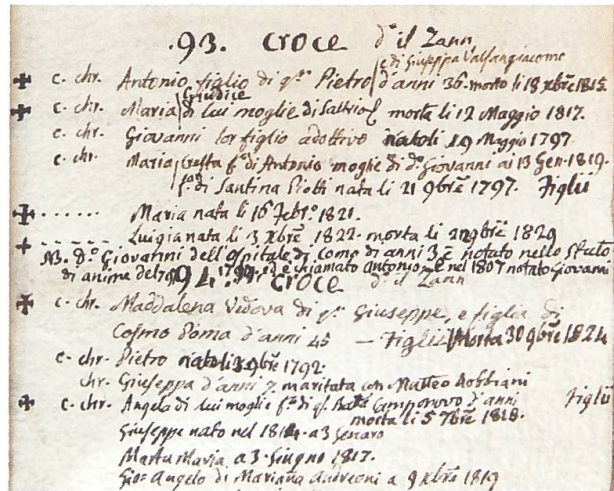 .93. Croce d.º il Zann
e di Giuseppa Valsangiacome
✚ c. chr. Antonio figlio di q.m Pietro d'anni 36. morto li 18 xbrē 1815.
Giudice
✚ c. chr. Maria di lui moglie di morta li 12 Maggio 1817.
c. chr. Giovanni lor figlio adottivo nato li 19 Maggio 1797
c. chr. Maria f.ª di Antonio moglie di d.º Giovanni ai 13 Gen. 1819.
f.ª di Santina Piotti nata li 21 9brē 1797. Figlii
✚ ...... Maria nata li 16 Febr.º 1821.
+ ------ Luigia nata li 3 xbrē 1822. morta li 9brē 1829
NB. d.º Giovanni dell'ospitale di Como di anni 3 è notato nello Stato
di anime del ed è chiamato Antonio e nel 1807 notato Giovanni
94. Croce d.º il Zann
✚ c. chr. Maddalena Vedova di q.m Giuseppe, e figlia di
Cosmo Doma d'anni 45 — Figlii Morta 30 9brē 1824
c. chr. Pietro nato li 9brē 1792.
chr. Giuseppa d'anni 7 maritata con Matteo Robbiani
✚ c. chr. Angela di lui moglie f.ª di q.m Camporovo d'anni Figlii
morta li 5 7brē 1828.
Giuseppe nato nel 1814. a 3 Genaro
Marta Maria, a 3. Giugno 1817.
Gio: Angelo di Mariana Andreoni a 9 xbrē 1819